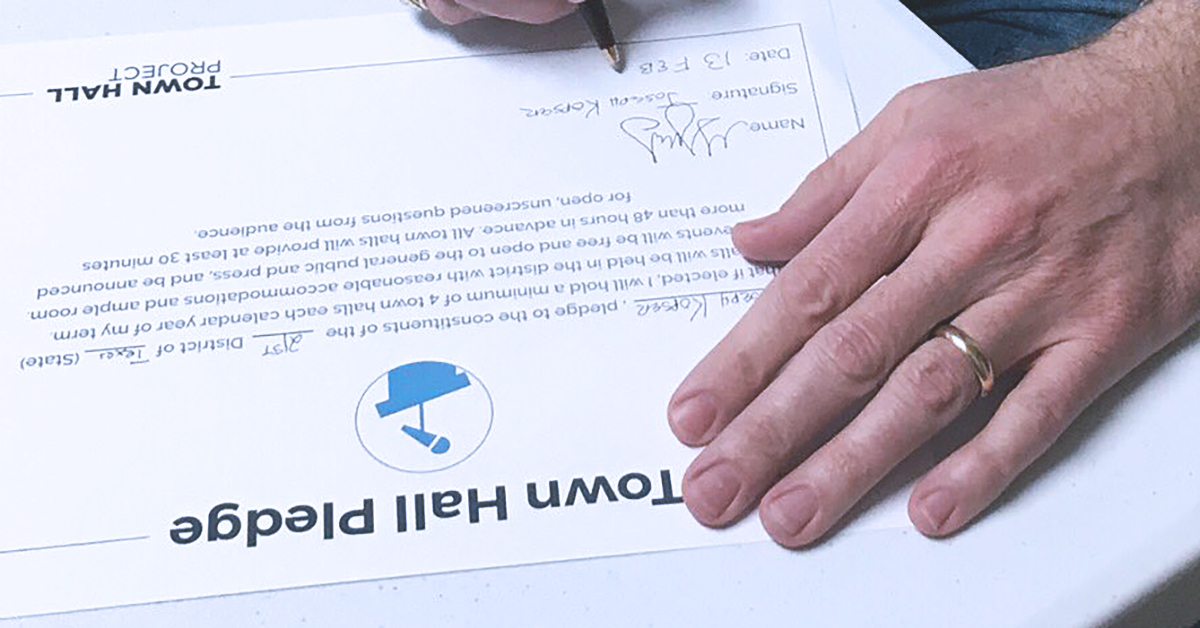 Town Hall Pledge
seph Kopser, pledge to the constituents of the 21ST District of Texas (State)
hat if elected, I will hold a minimum of 4 town halls each calendar year of my term.
alls will be held in the district with reasonable accommodations and ample room.
events will be free and open to the general public and press, and be announced
more than 48 hours in advance. All town halls will provide at least 30 minutes
for open, unscreened questions from the audience.
Name
Signature Joseph Kopser
Date: 13 FEB
TOWN HALL
PROJECT